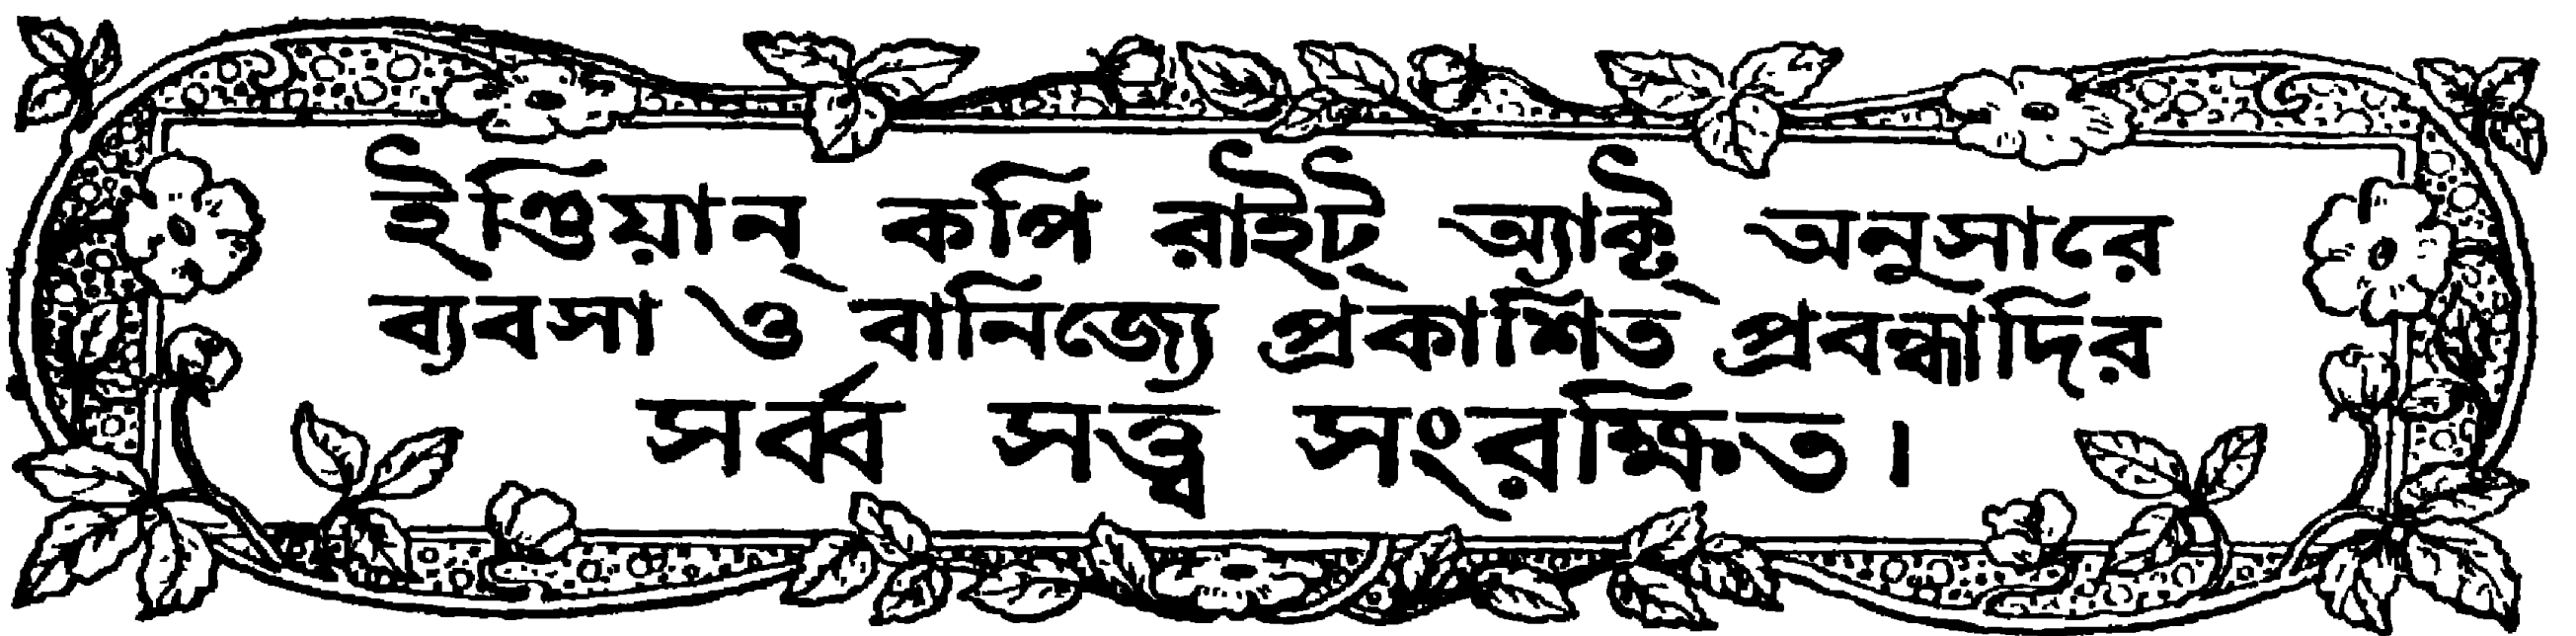 ইণ্ডিয়ান্ কপি রাইট্ অ্যাক্ট্ অনুসারে
ব্যবসা ও বানিজ্যে প্রকাশিত প্রবন্ধাদির
সর্ব্ব সত্ত্ব সংরক্ষিত।